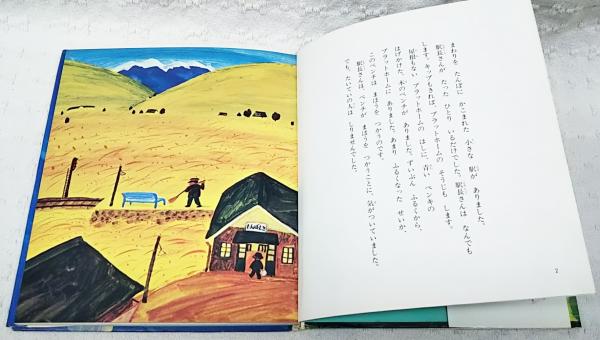 まわりを たんぼに かこまれた 小さな 駅が ありました。
駅長さんが たった ひとり いるだけでした。駅長さんは なんでも
します。キップもきれば、プラットホームの そうじも します。
屋根もない プラットホームの はしに、青い ペンキの
はげかけた、木のベンチが ありました。ずいぶん ふるくから、
プラットホームに ありました。あまり ふるくなった せいか、
このベンチは まほうを つかうのです。
駅長さんは、ベンチが まほうを つかうことに、気がついていました。
でも、たいていの人は しりませんでした。
2